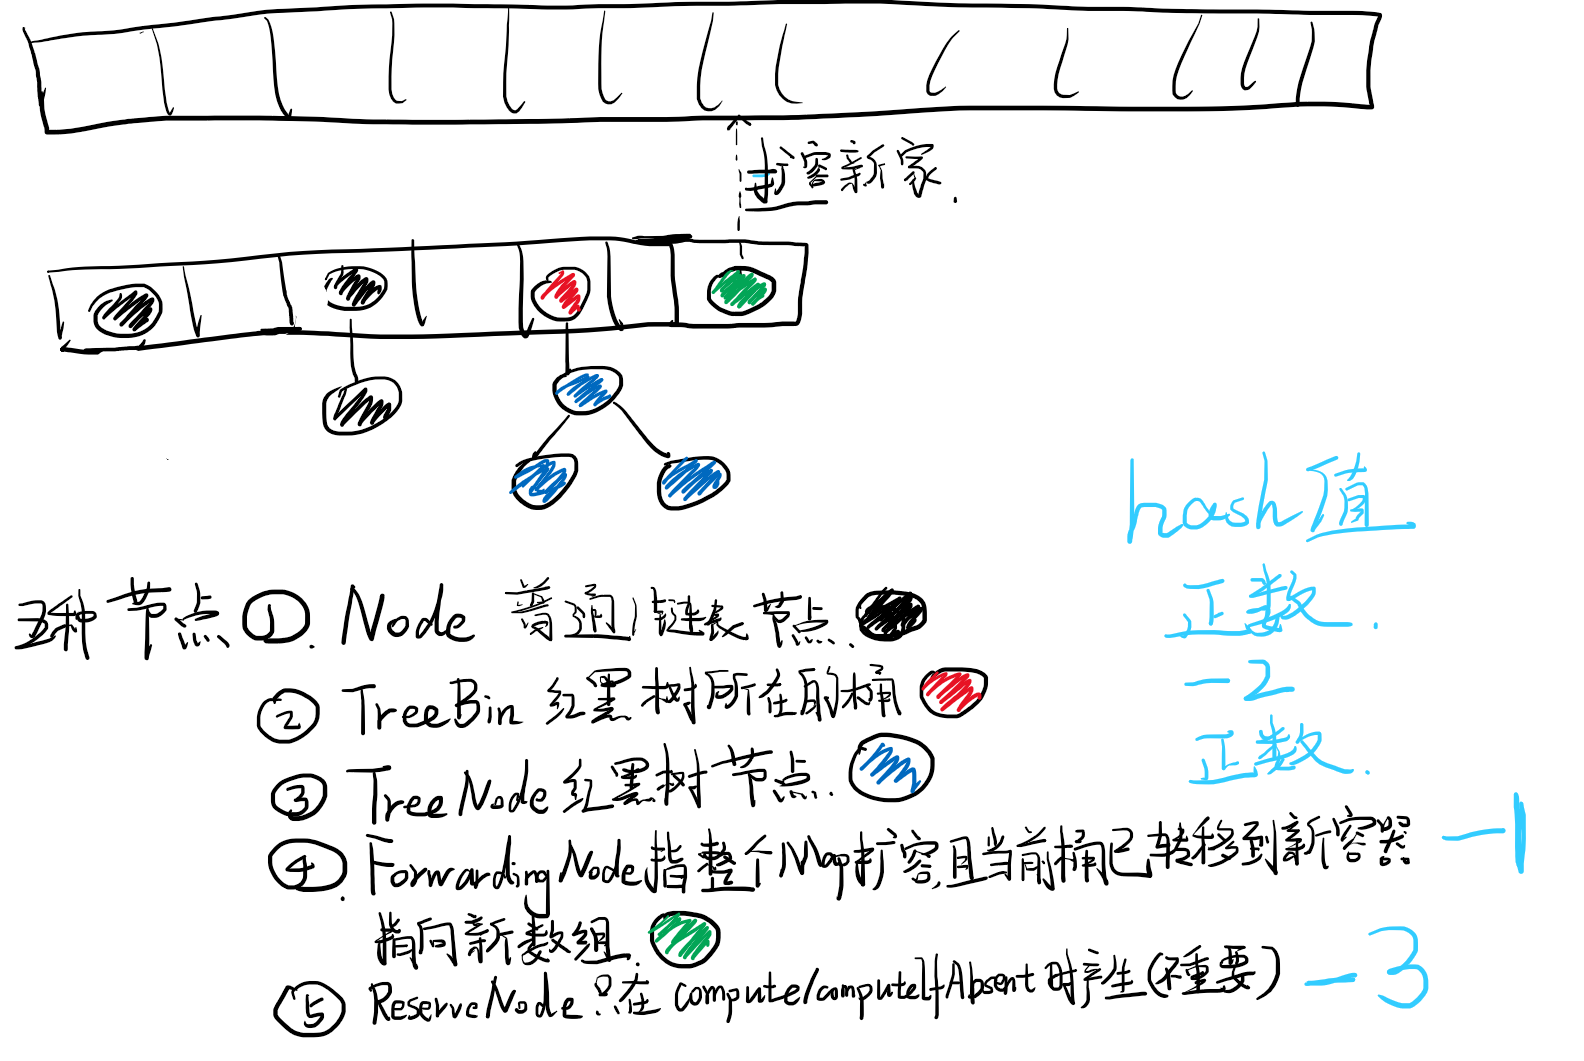 扩容新家.
hash值
五种节点 ①. Node 普通/链表节点. 正数.
② TreeBin 红黑树所在的桶 -2
③ TreeNode 红黑树节点. 正数.
④. ForwardingNode 指整个Map扩容,且当前桶已转移到新容器 -1
指向新数组.
⑤ ReserveNode 只在 compute/computeIfAbsent 时产生(不重要) -3